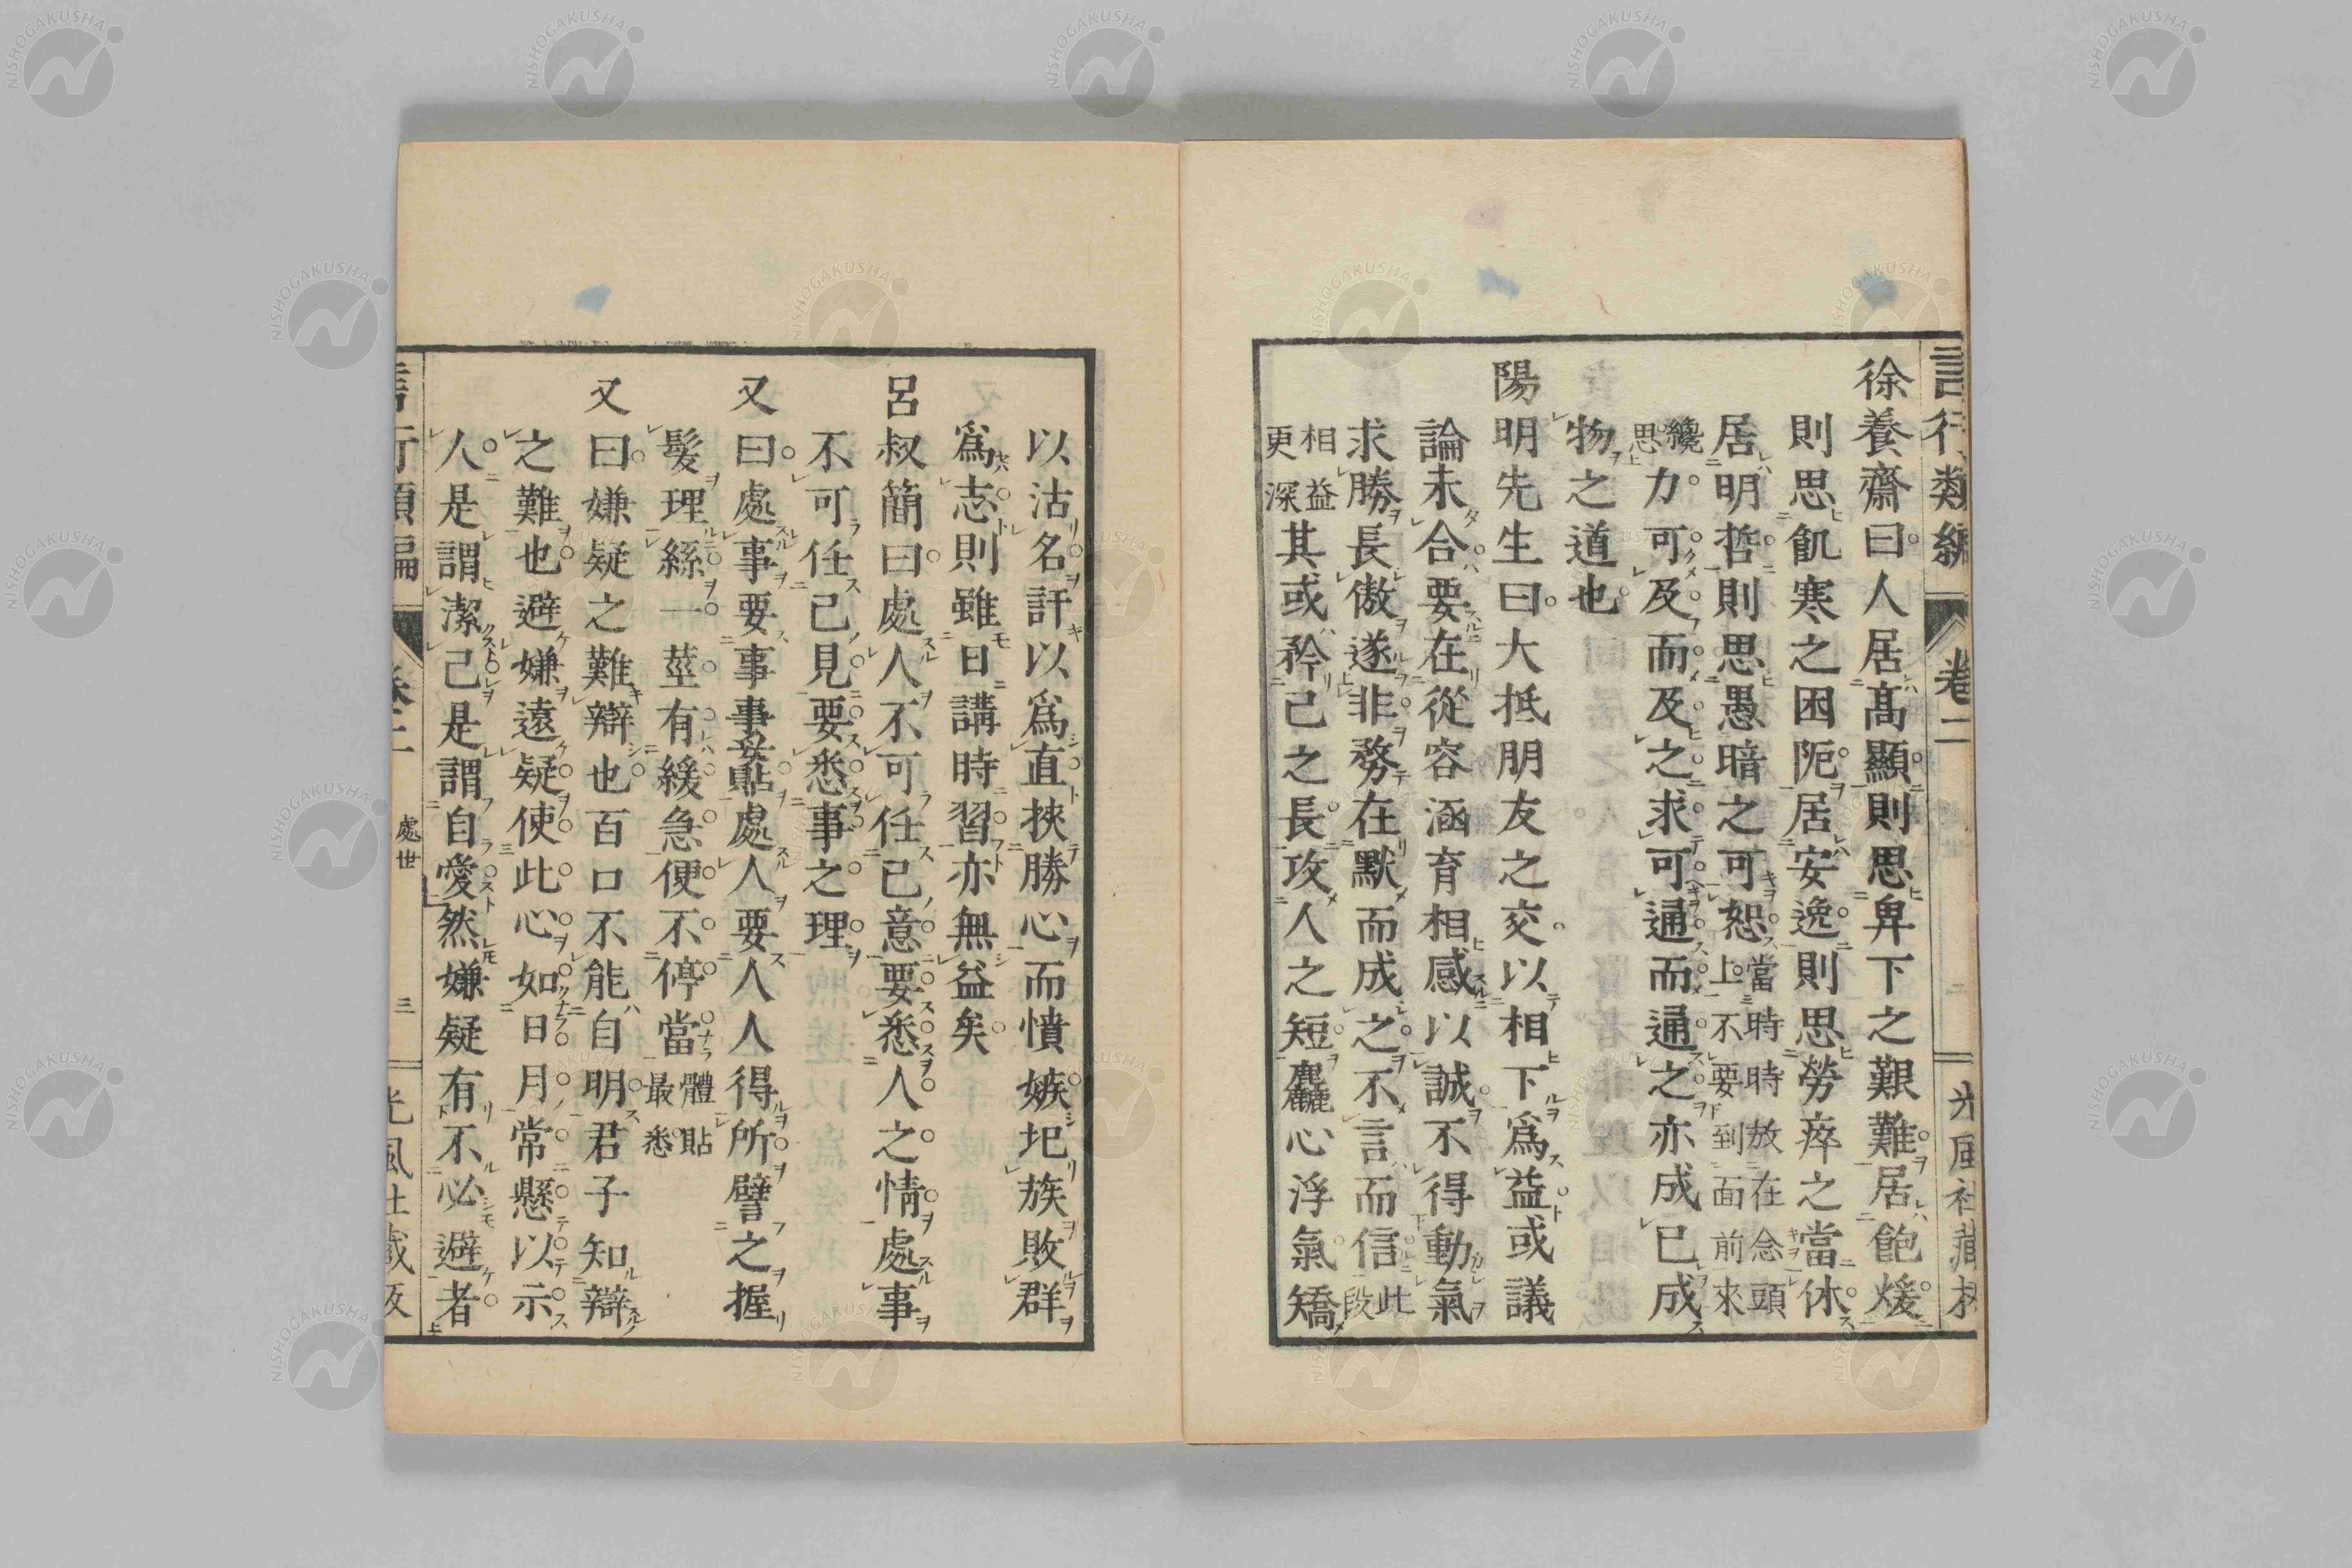 言行類編
卷二
徐養齋曰人居髙顯則思卑下之艱難居飽煖
則思飢寒之困阨居安逸則思勞瘁之當休
居明哲則思愚暗之可恕當時時放在念頭上不要到面前來
纔思力可及而及之求可通而通之亦成已成
物之道也
陽明先生曰大抵朋友之交以相下爲益或議
論未合要在從容涵育相感以誠不得動氣
求勝長傲遂非務在默而成之不言而信此段
相益更深其或矜己之長攻人之短麤心浮氣矯
以沽名訐以爲直挾勝心而憤嫉圮族敗群
爲志則雖日講時習亦無益矣
呂叔簡曰處人不可任己意要悉人之情處事
不可任己見要悉事之理
又曰處事要事事妥貼處人要人人得所譬之握
髮理絲一莖有緩急便不停當體貼最悉
又曰嫌疑之難辯也百口不能自明君子知辯
之難也避嫌遠疑使此心如日月常懸以示
人是謂潔己是謂自愛然嫌疑有不必避者
處世
三
NISHOGAKUSHA